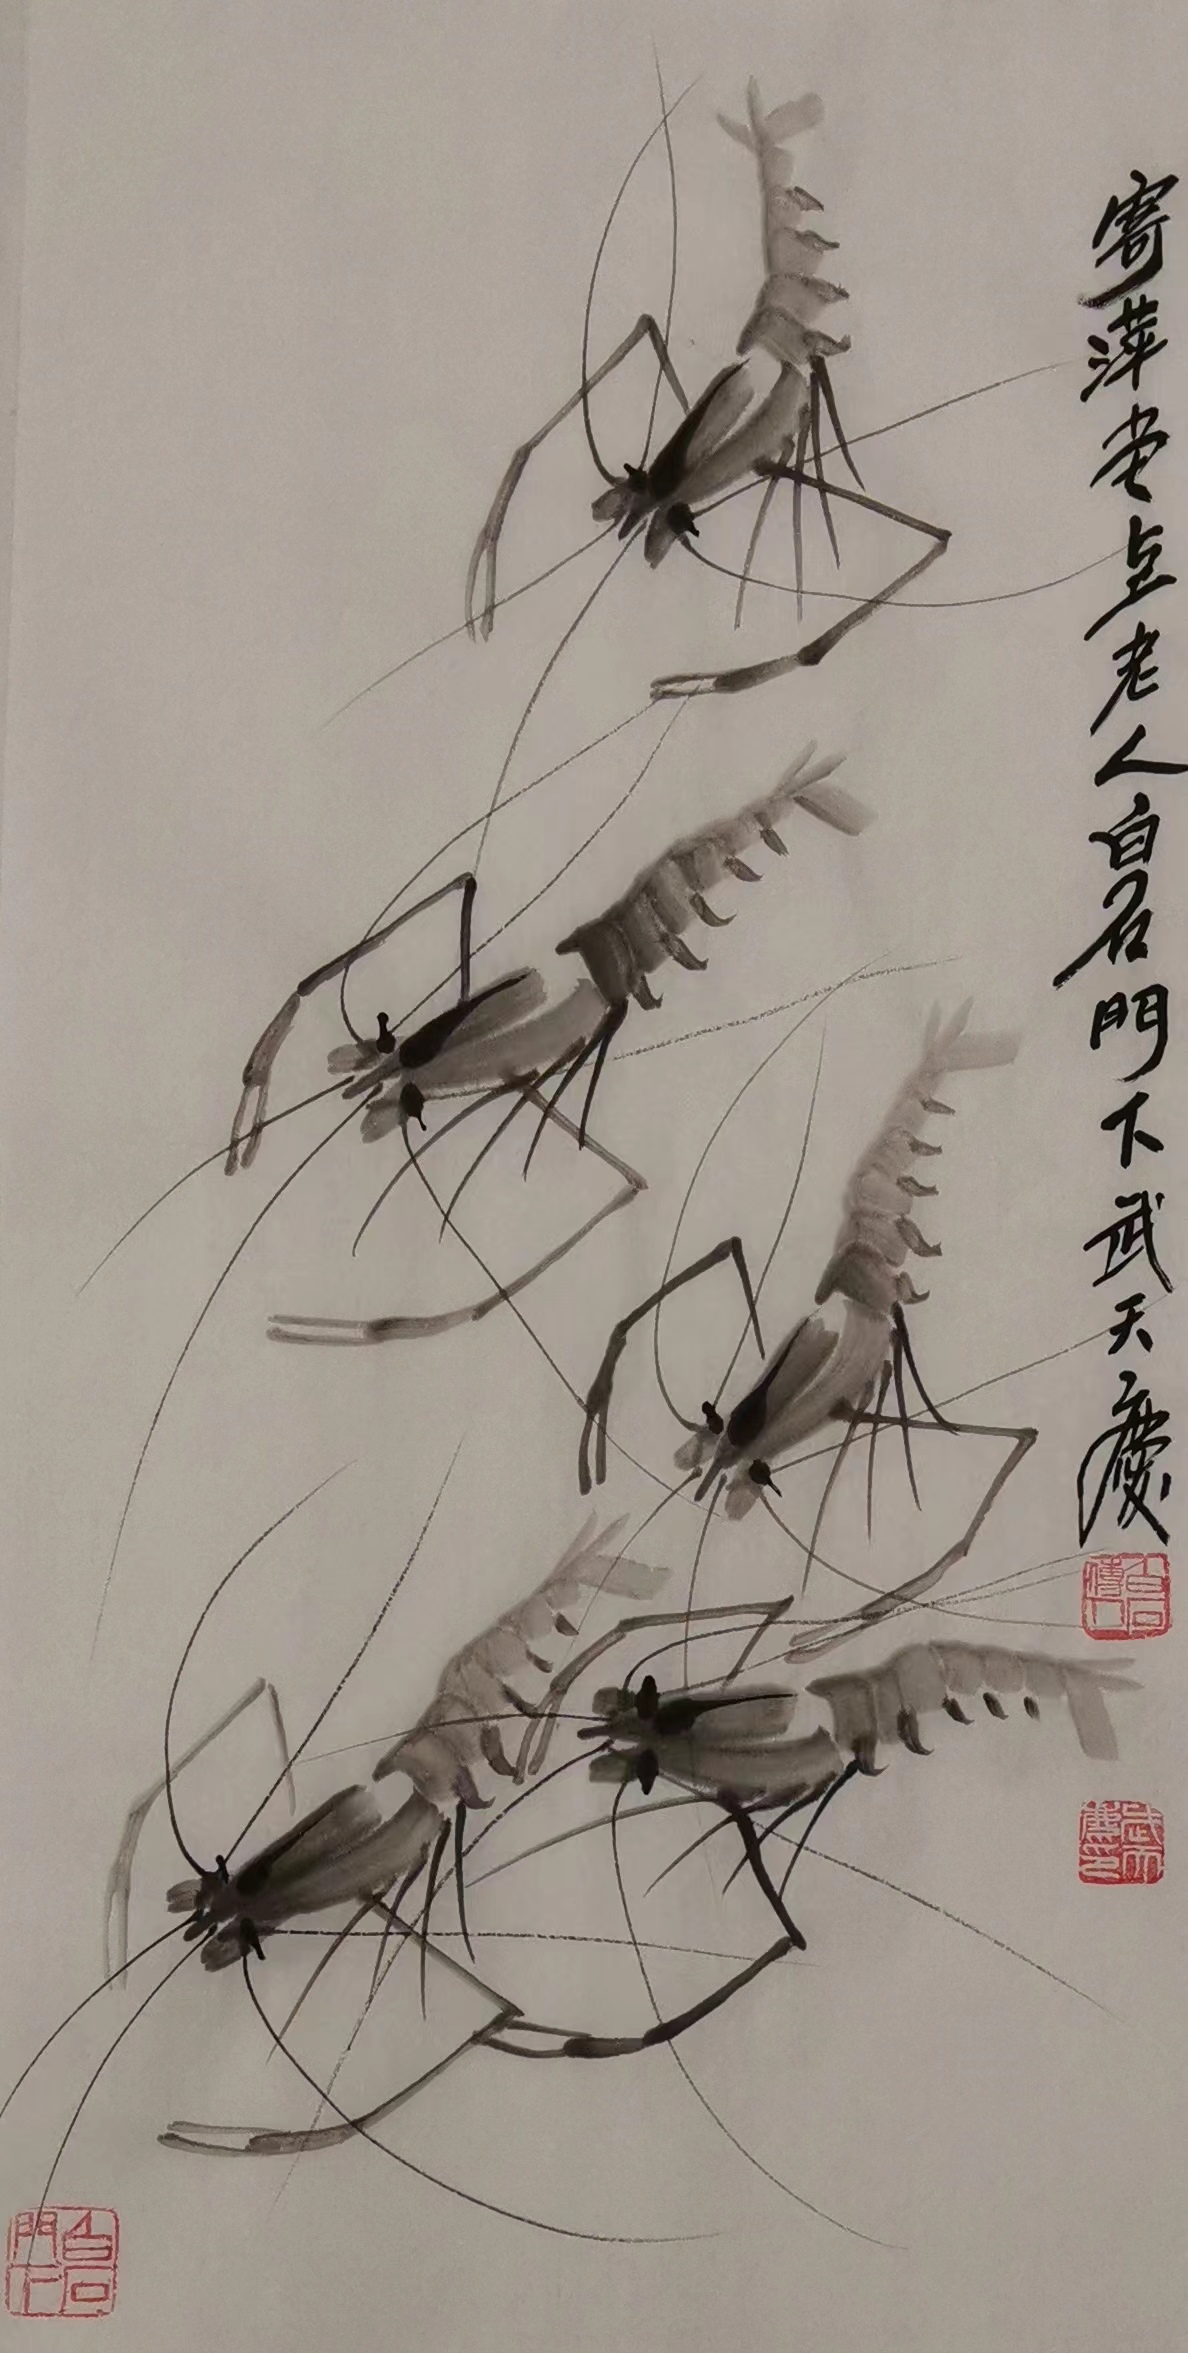 寄萍堂上老人白石門下武天慶
白石傳人
武天慶印
白石門下